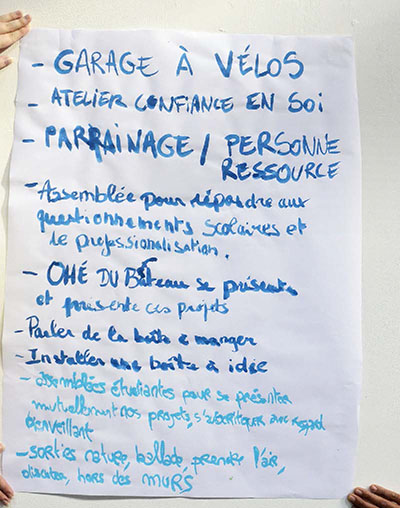 - GARAGE À VÉLOS
- ATELIER CONFIANCE EN SOI
- PARRAINAGE / PERSONNE
RESSOURCE
- Assemblée pour répondre aux
questionnements scolaires et
de professionalisation.
- OHÉ DU Bâteau se présente
et présente ces projets
- Parler de la boîte à manger
- Installer une boîte à idée
- assemblées étudiantes pour se présenter
mutuellement nos projets, s'autocritiquer avec regard
bienveillant
- sorties nature, ballade, prendre l'air,
discuter, hors des MURS